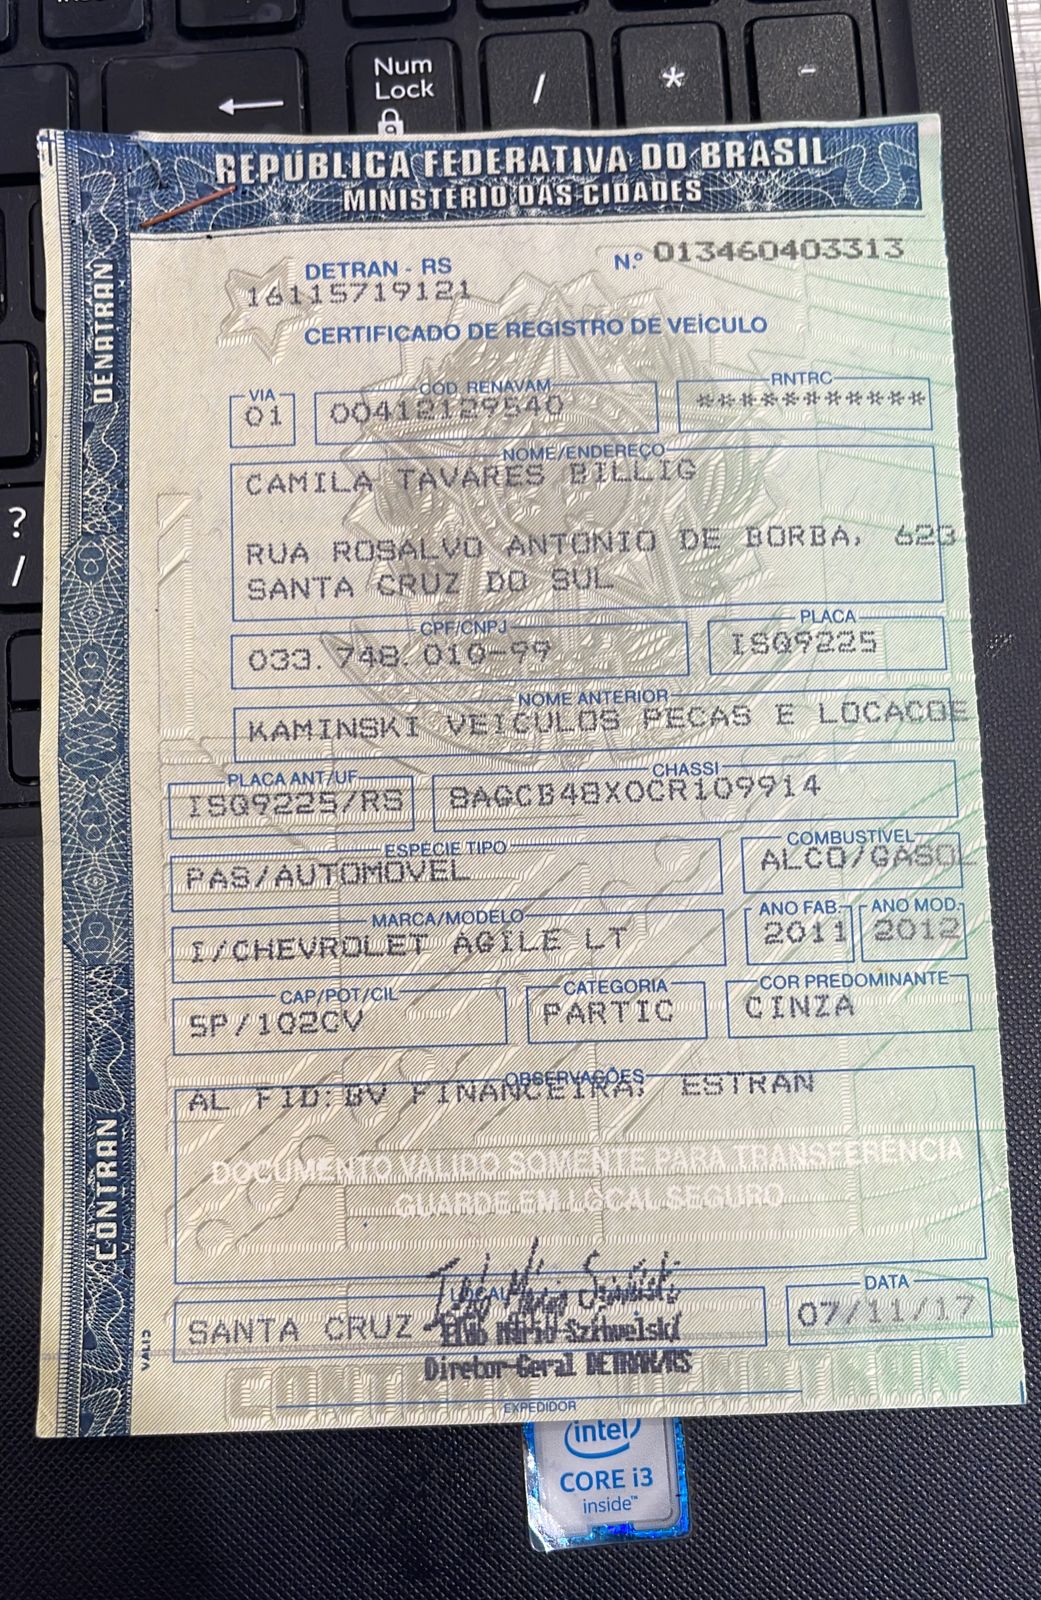 Num
Lock
/
*
-
?
/
REPÚBLICA FEDERATIVA DO BRASIL
MINISTÉRIO DAS CIDADES
DENATRAN
CONTRAN
DETRAN - RS
N.º 013460403313
16115719121
CERTIFICADO DE REGISTRO DE VEÍCULO
VIA
01
CÓD. RENAVAM
00412129540
RNTRC
***********
NOME/ENDEREÇO
CAMILA TAVARES BILLIG
RUA ROSALVO ANTONIO DE BORBA, 623
SANTA CRUZ DO SUL
CPF/CNPJ
033.748.010-99
PLACA
ISQ9225
NOME ANTERIOR
KAMINSKI VEICULOS PECAS E LOCACOE
PLACA ANT/UF
ISQ9225/RS
CHASSI
8AGCB48X0CR109914
ESPÉCIE TIPO
PAS/AUTOMOVEL
COMBUSTÍVEL
ALCO/GASOL
MARCA/MODELO
I/CHEVROLET AGILE LT
ANO FAB.
2011
ANO MOD.
2012
CAP/POT/CIL
5P/102CV
CATEGORIA
PARTIC
COR PREDOMINANTE
CINZA
OBSERVAÇÕES
AL FID:BV FINANCEIRA, ESTRAN
DOCUMENTO VÁLIDO SOMENTE PARA TRANSFERÊNCIA
GUARDE EM LOCAL SEGURO
LOCAL
SANTA CRUZ
Szinvelski
Diretor-Geral DETRAN/RS
DATA
07/11/17
EXPEDIDOR
intel
CORE i3
inside™